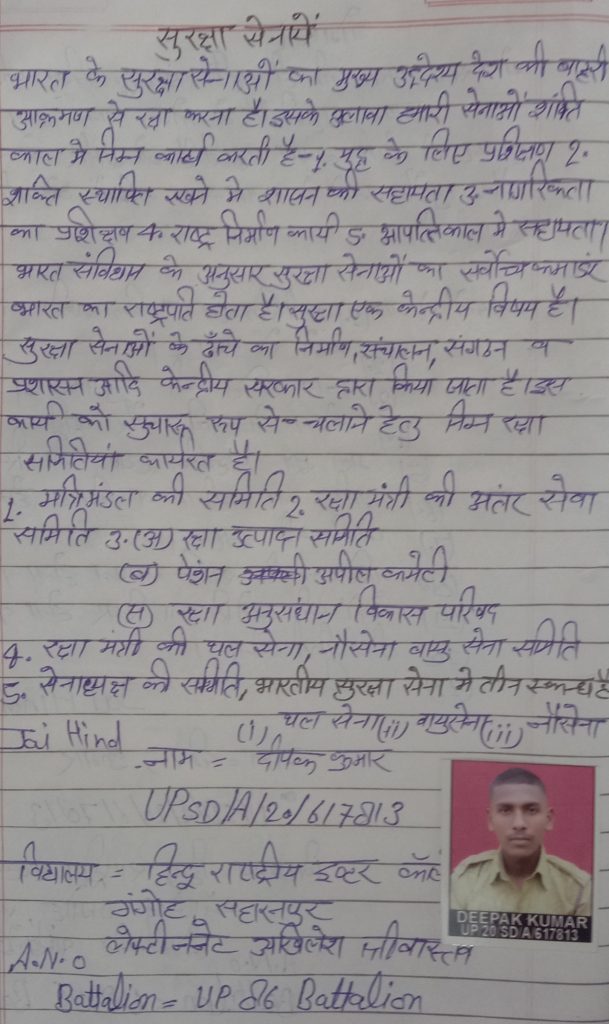 सुरक्षा सेनायें
भारत के सुरक्षा सेनाओं का मुख्य उद्देश्य देश की बाहरी
आक्रमण से रक्षा करना है। इसके अलावा हमारी सेनाओं शांति
काल मे निम्न कार्य करती है- 1. युद्ध के लिए प्रशिक्षण 2.
शान्ति स्थापित रखने मे शासन की सहायता 3. नागरिकता
का प्रशिक्षण 4. राष्ट्र निर्माण कार्य 5. आपत्तिकाल मे सहायता।
भारत संविधान के अनुसार सुरक्षा सेनाओं का सर्वोच्च कमांडर
भारत का राष्ट्रपति होता है। सुरक्षा एक केन्द्रीय विषय है।
सुरक्षा सेनाओं के ढाँचे का निर्माण, संचालन, संगठन व
प्रशासन आदि केन्द्रीय सरकार द्वारा किया जाता है। इस
कार्य को सुचारू रूप से चलाने हेतु निम्न रक्षा
समितियां कार्यरत है।
1. मंत्रिमंडल की समिति 2. रक्षा मंत्री की अंतर सेवा
समिति 3. (अ) रक्षा उत्पादन समिति
(ब) पेंशन अपील कमेटी
(स) रक्षा अनुसंधान विकास परिषद
4. रक्षा मंत्री की थल सेना, नौसेना वायु सेना समिति
5. सेनाध्यक्ष की समिति, भारतीय सुरक्षा सेना मे तीन स्कन्ध है
(i) थल सेना (ii) वायुसेना (iii) नौसेना
Jai Hind
नाम = दीपक कुमार
UPSD/A/20/617813
विद्यालय = हिन्दु राष्ट्रीय इण्टर कॉले
गंगोह, सहारनपुर
A.N.O लेफ्टीनेनेट अखिलेश श्रीवास्तव
Battalion = UP 86 Battalion
DEEPAK KUMAR
UP 20 SD/A/617813